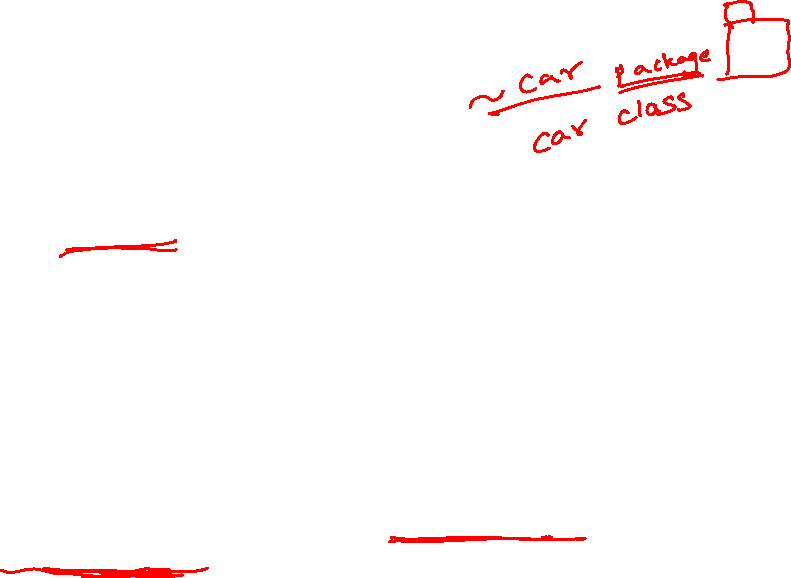 ~ car package
car class